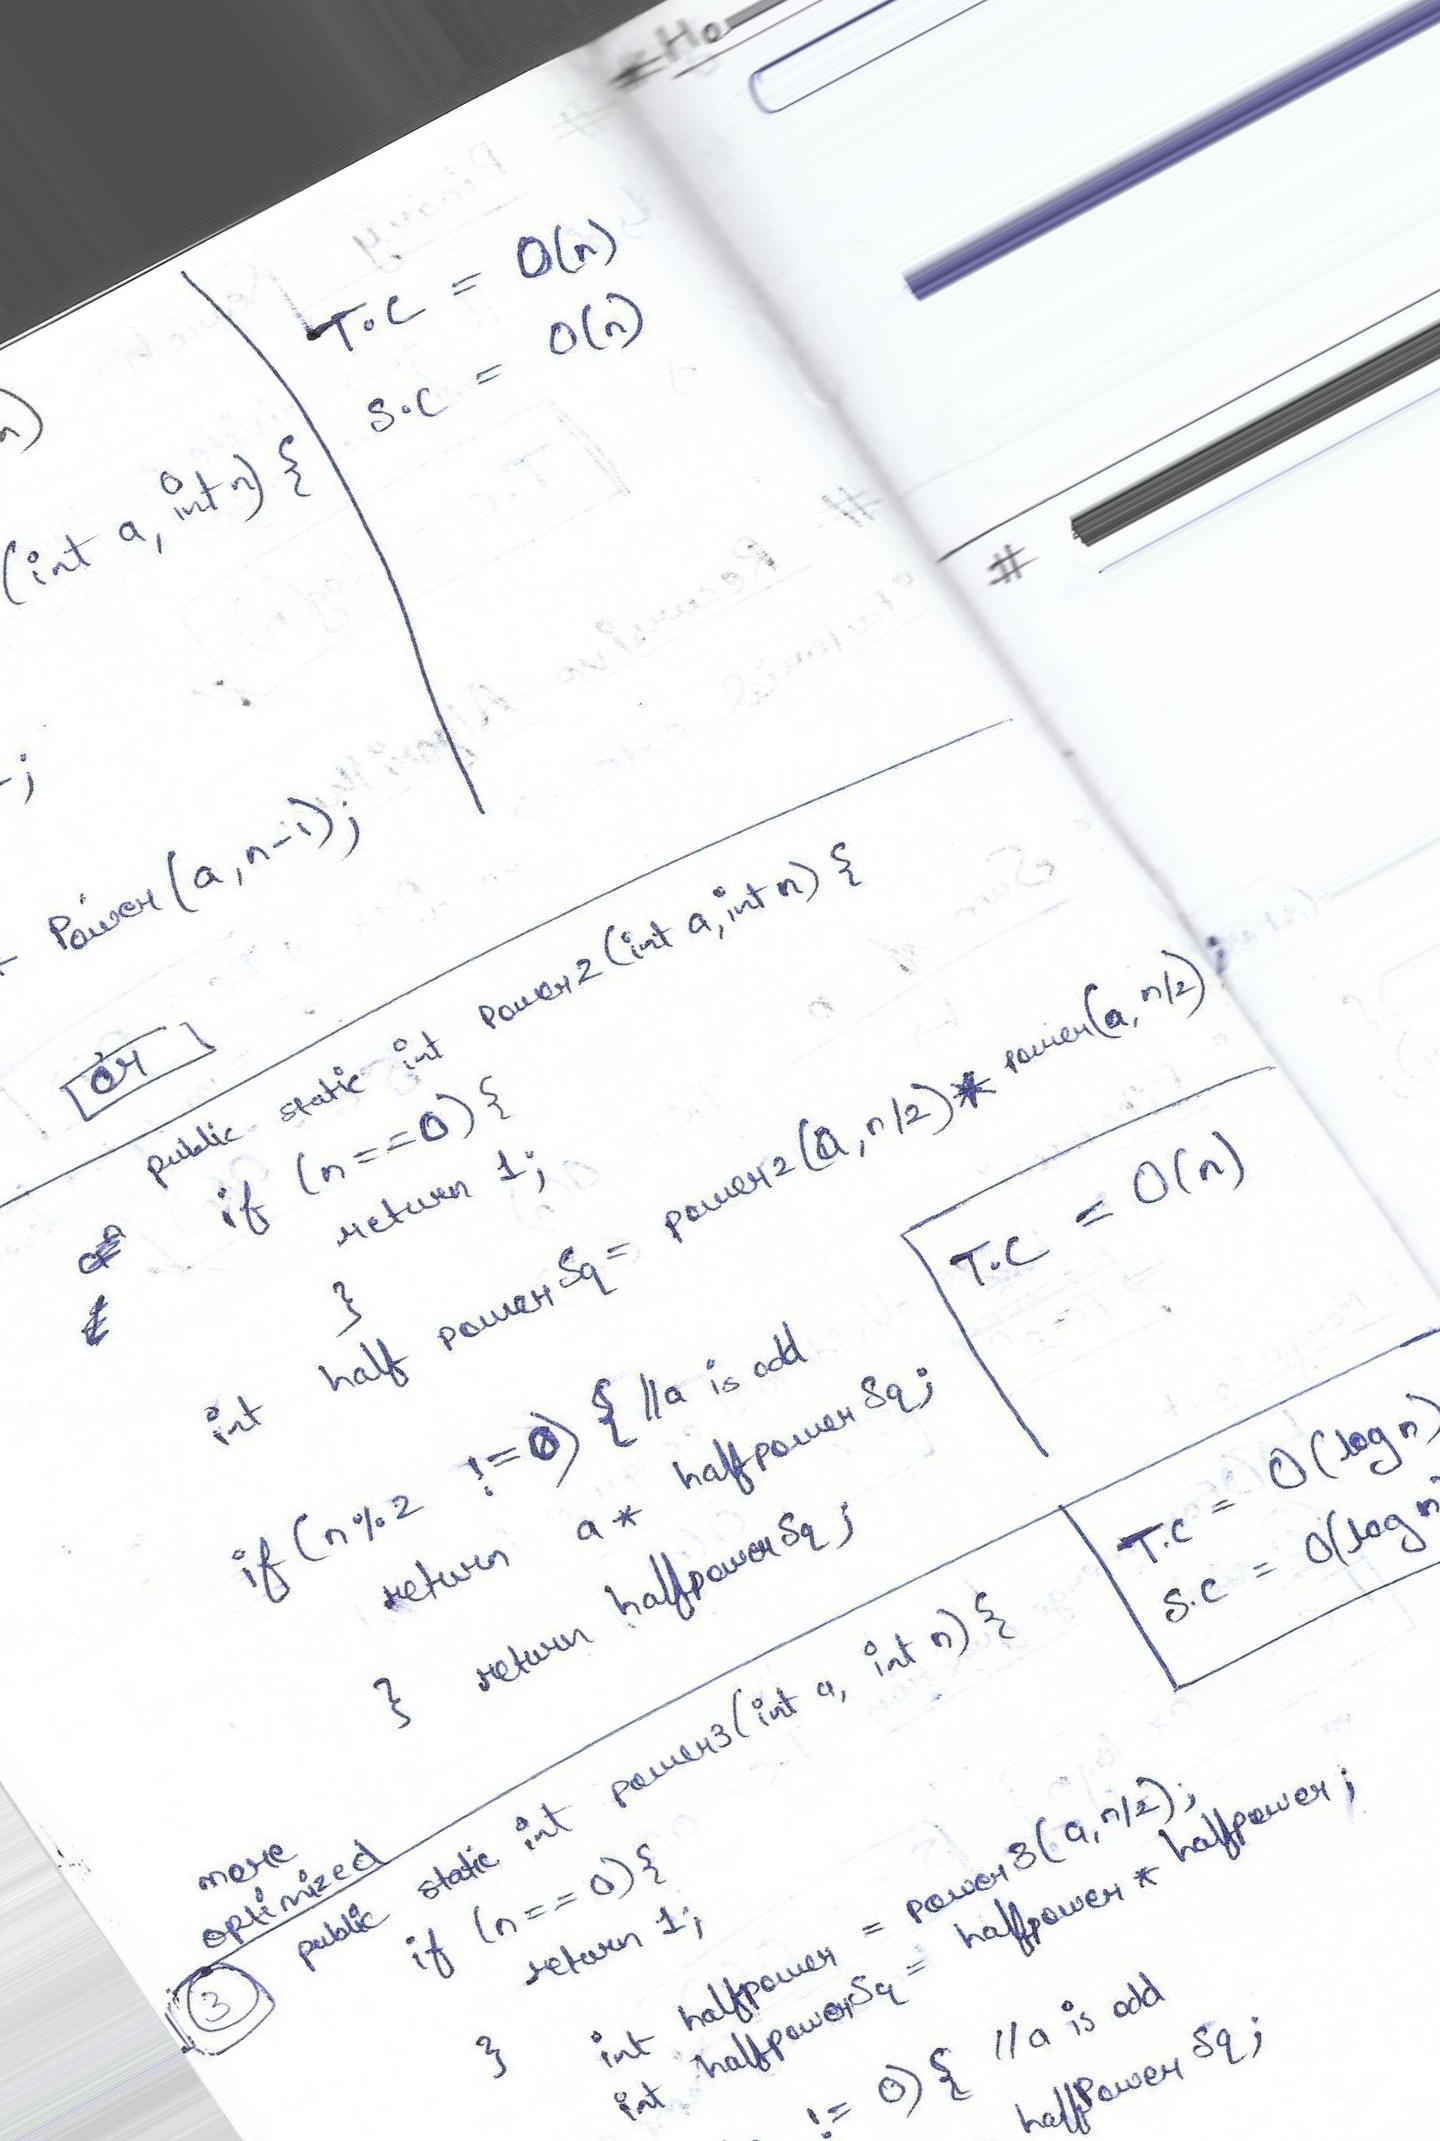 T.C = O(n)
S.C = O(n)
n)
(int a, int n) {
-;
Power(a, n-1);
or
public static int power2(int a, int n) {
if (n==0) {
return 1;
}
int half powerSq = power2(a, n/2) * power(a, n/2);
T.C = O(n)
if (n%2 !=0) { //a is odd
return a * halfpowerSq;
}
return halfpowerSq;
T.C = O(log n)
S.C = O(log n
more
optimized
3
public static int power3(int a, int n) {
if (n==0) {
return 1;
}
int halfpower = power3(a, n/2);
int halfpowerSq = halfpower * halfpower;
!= 0) { //a is odd
halfPowerSq;
#